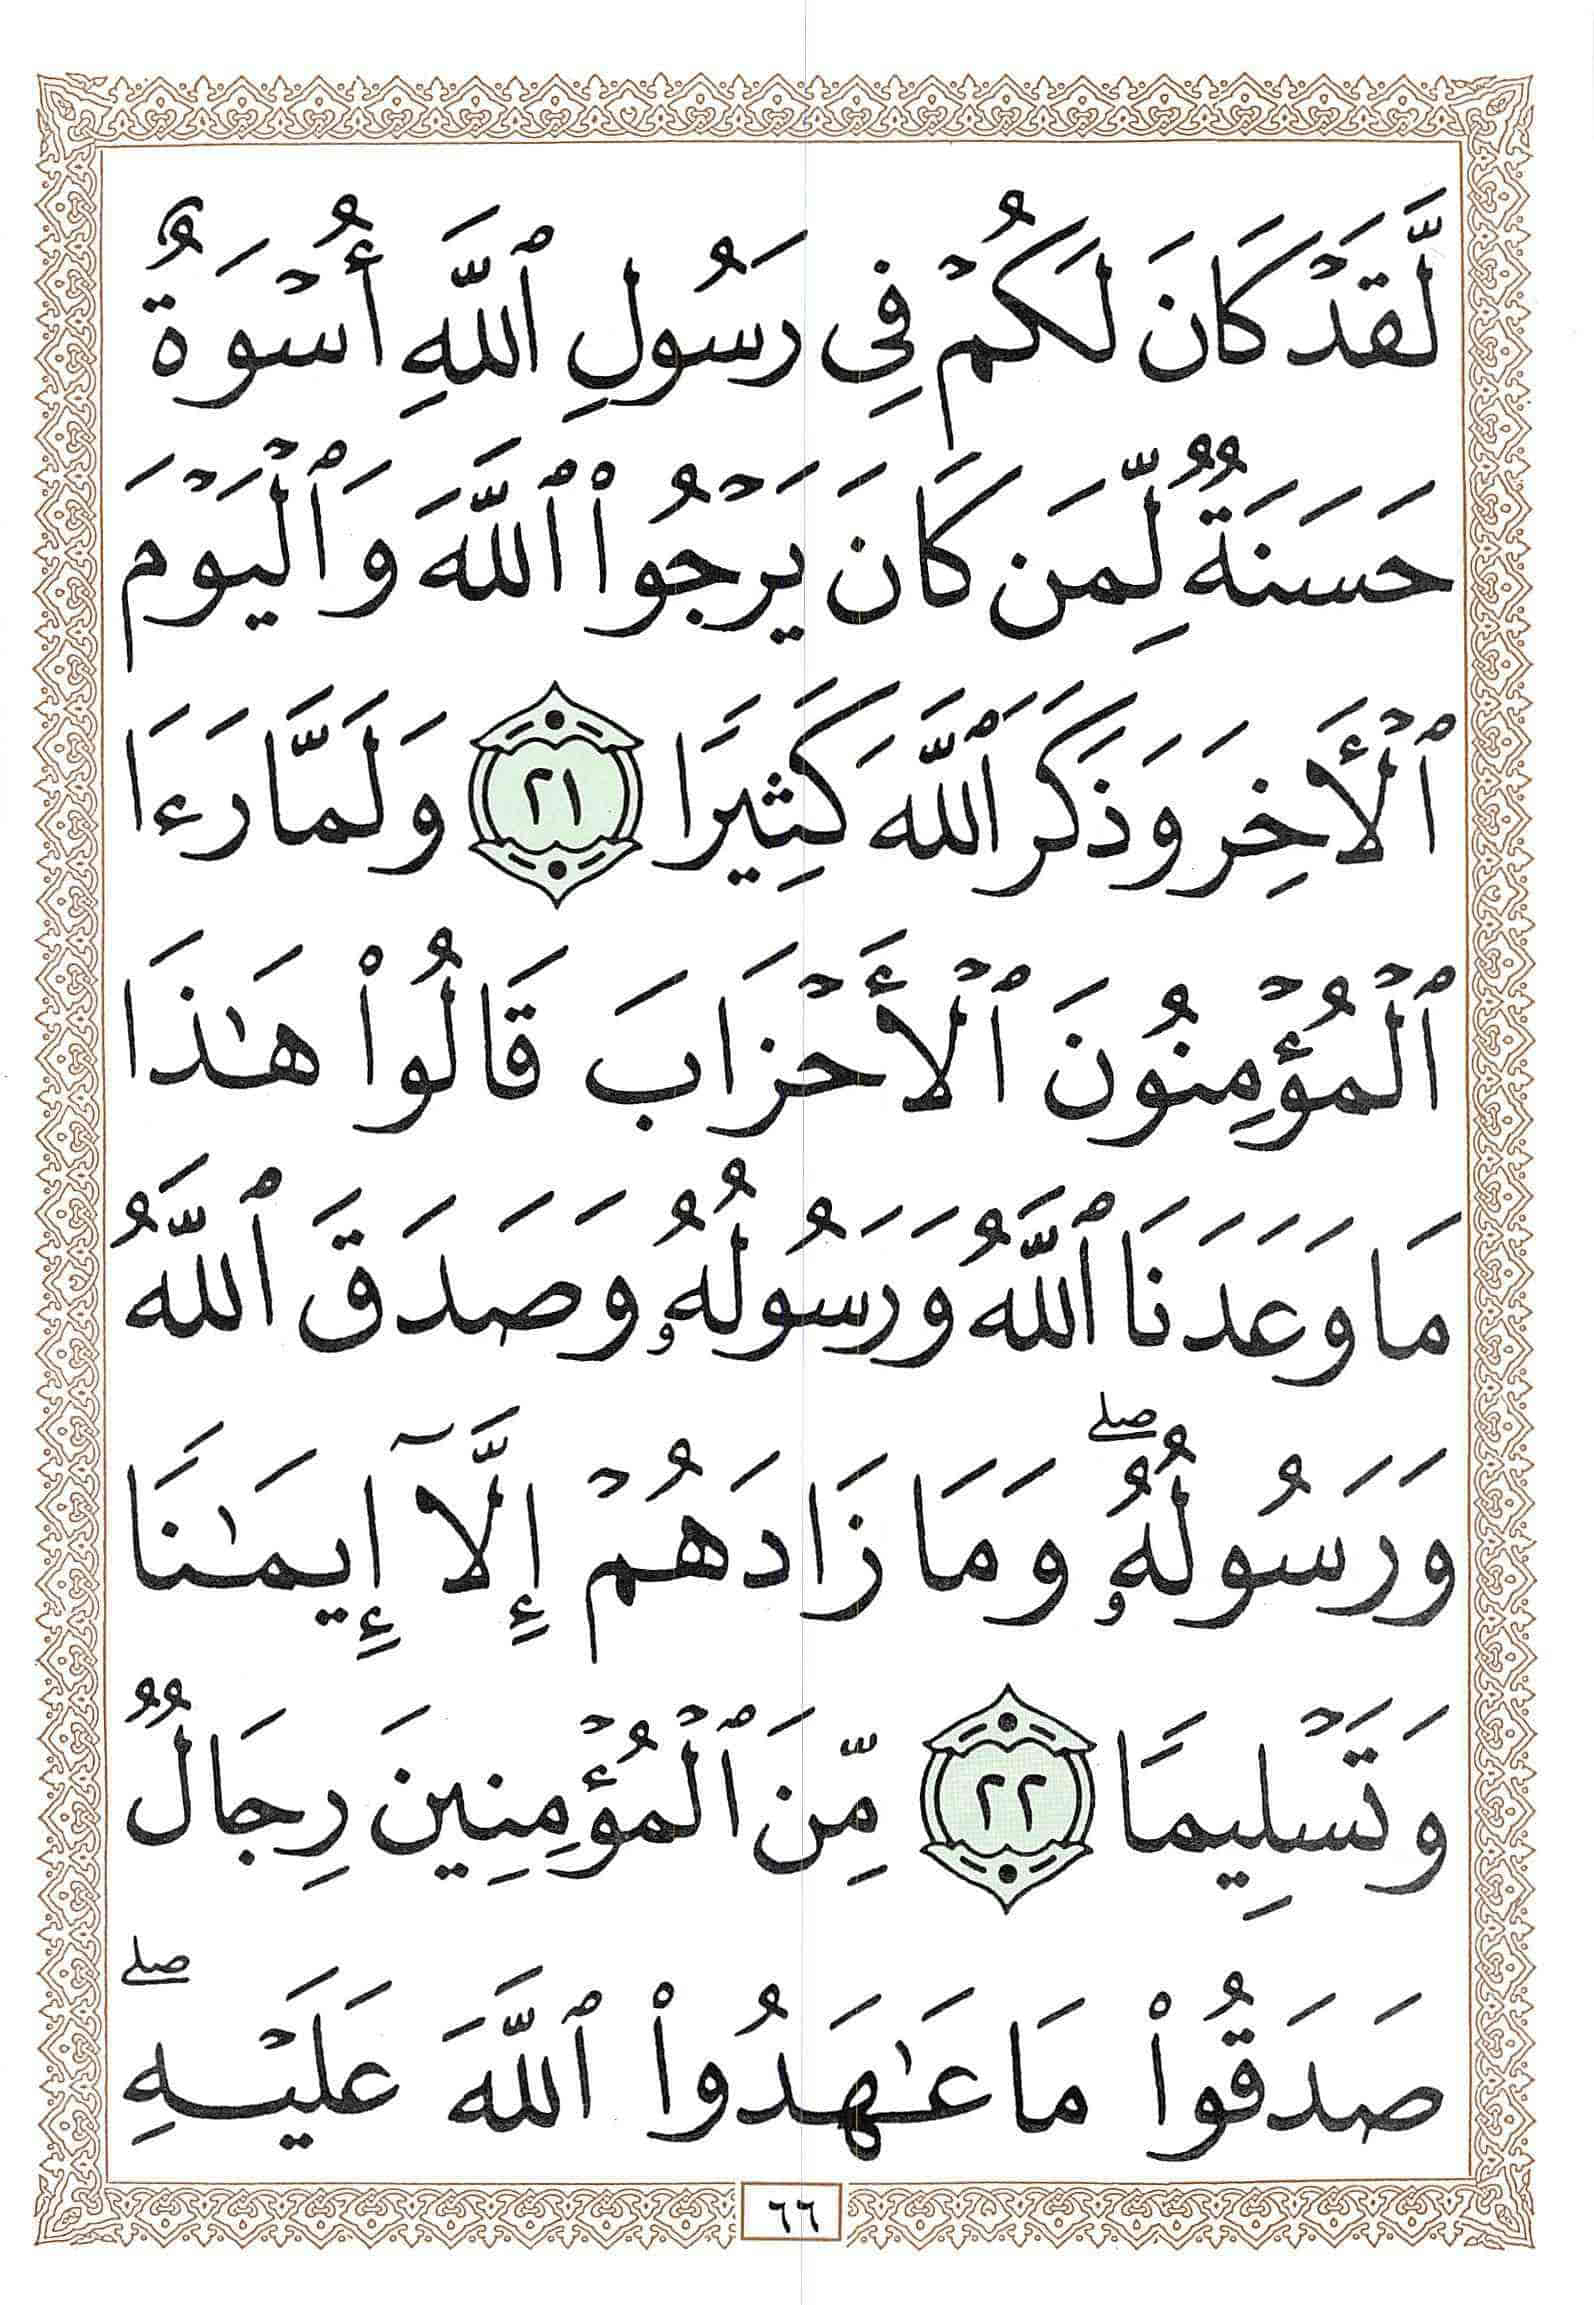 لَّقَدْ كَانَ لَكُمْ فِى رَسُولِ ٱللَّهِ أُسْوَةٌ
حَسَنَةٌ لِّمَن كَانَ يَرْجُوا۟ ٱللَّهَ وَٱلْيَوْمَ
ٱلْأَخِرَ وَذَكَرَ ٱللَّهَ كَثِيرًا ٢١ وَلَمَّا رَءَا
ٱلْمُؤْمِنُونَ ٱلْأَحْزَابَ قَالُوا۟ هَٰذَا
مَا وَعَدَنَا ٱللَّهُ وَرَسُولُهُۥ وَصَدَقَ ٱللَّهُ
وَرَسُولُهُۥ ۖ وَمَا زَادَهُمْ إِلَّآ إِيمَٰنًا
وَتَسْلِيمًا ٢٢ مِّنَ ٱلْمُؤْمِنِينَ رِجَالٌ
صَدَقُوا۟ مَا عَٰهَدُوا۟ ٱللَّهَ عَلَيْهِ ۖ
٦٦